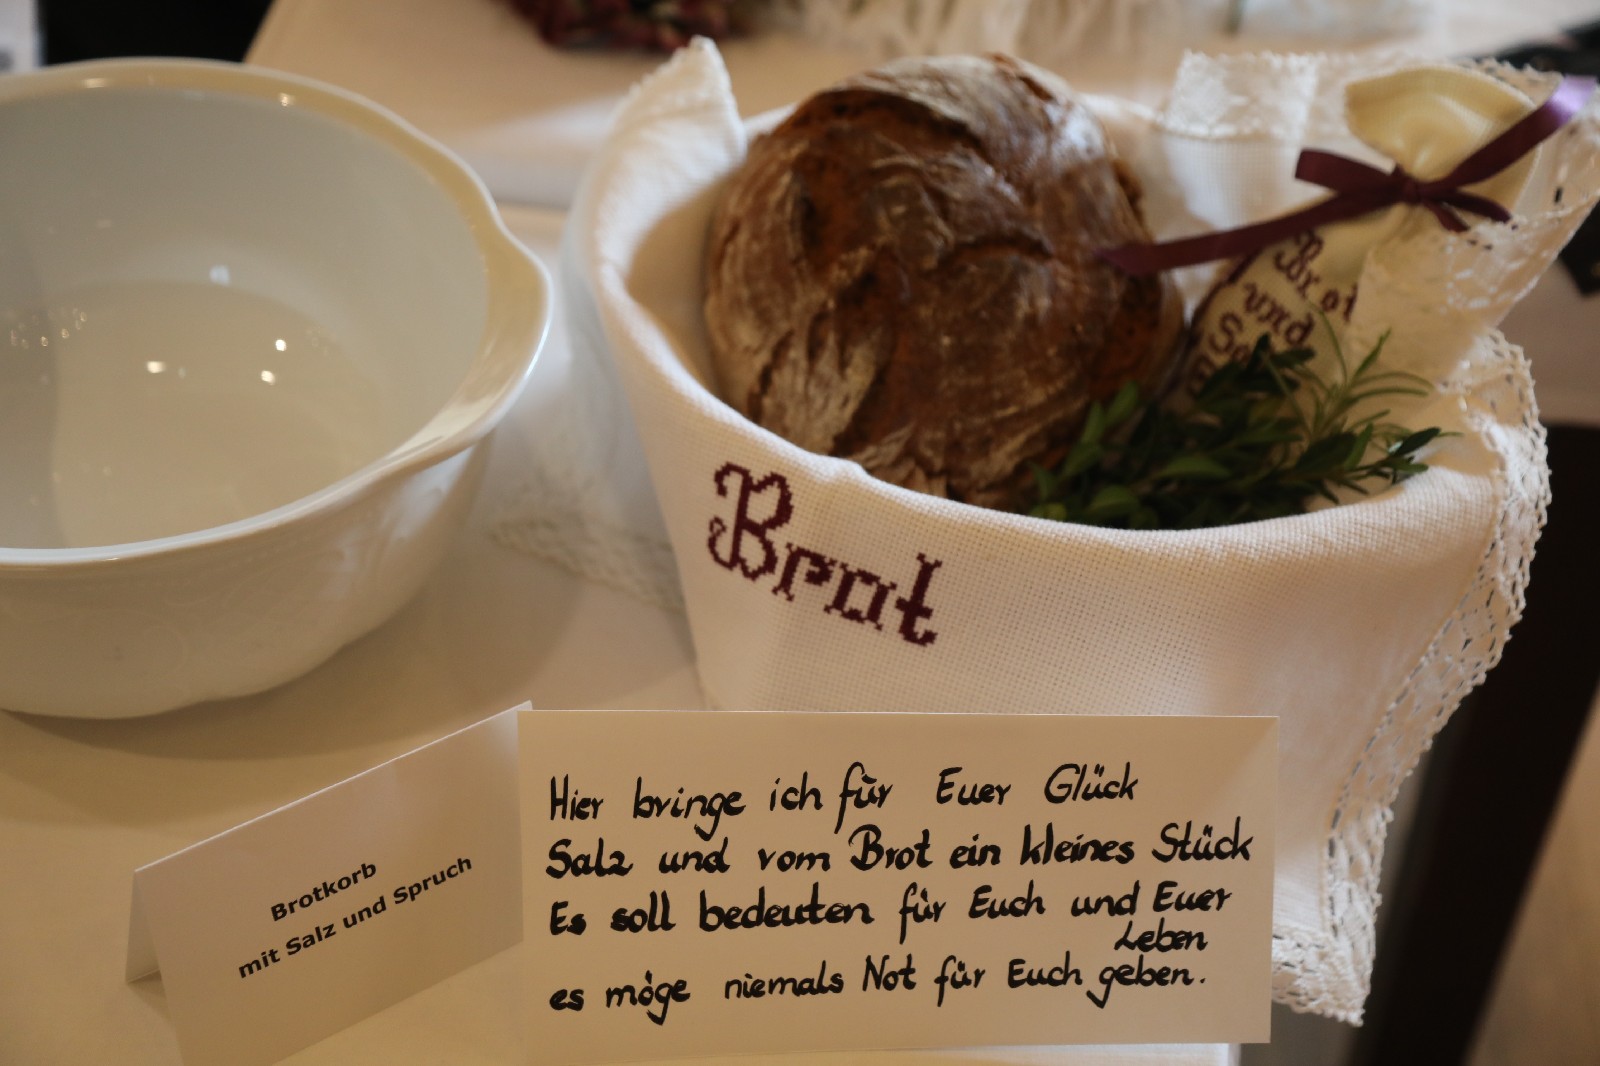 Brot
und
Brot
Brotkorb
mit Salz und Spruch
Hier bringe ich für Euer Glück
Salz und vom Brot ein kleines Stück
Es soll bedeuten für Euch und Euer
Leben
es möge niemals Not für Euch geben.